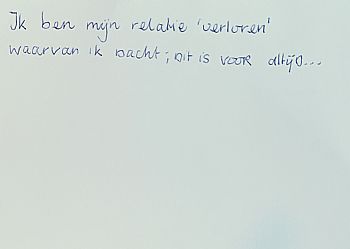 Ik ben mijn relatie 'verloren'
waarvan ik dacht; Dit is voor altijd...